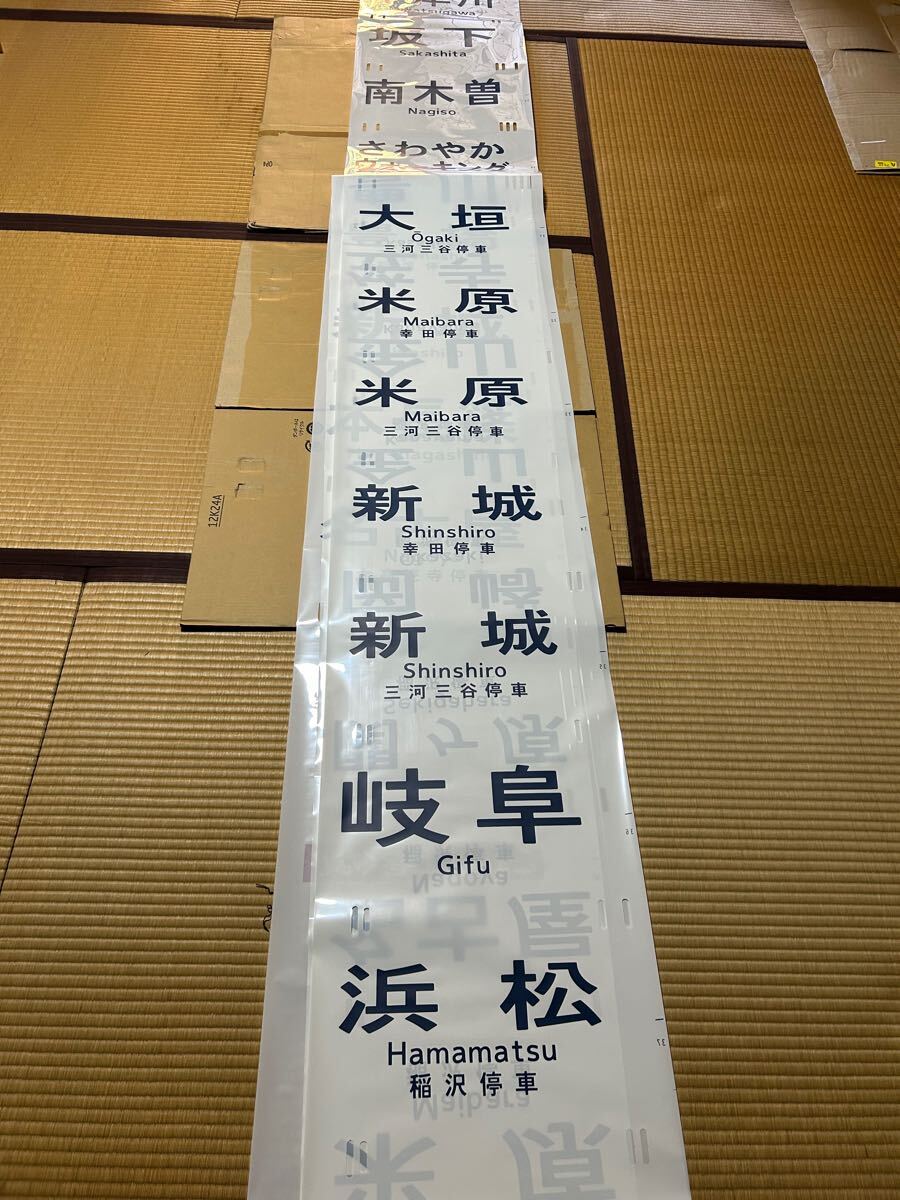 坂下
Sakashita
南木曽
Nagiso
さわやか
ウォーキング
大垣
Ōgaki
三河三谷停車
米原
Maibara
幸田停車
米原
Maibara
三河三谷停車
新城
Shinshiro
幸田停車
新城
Shinshiro
三河三谷停車
岐阜
Gifu
浜松
Hamamatsu
稲沢停車
12K24A
36
37